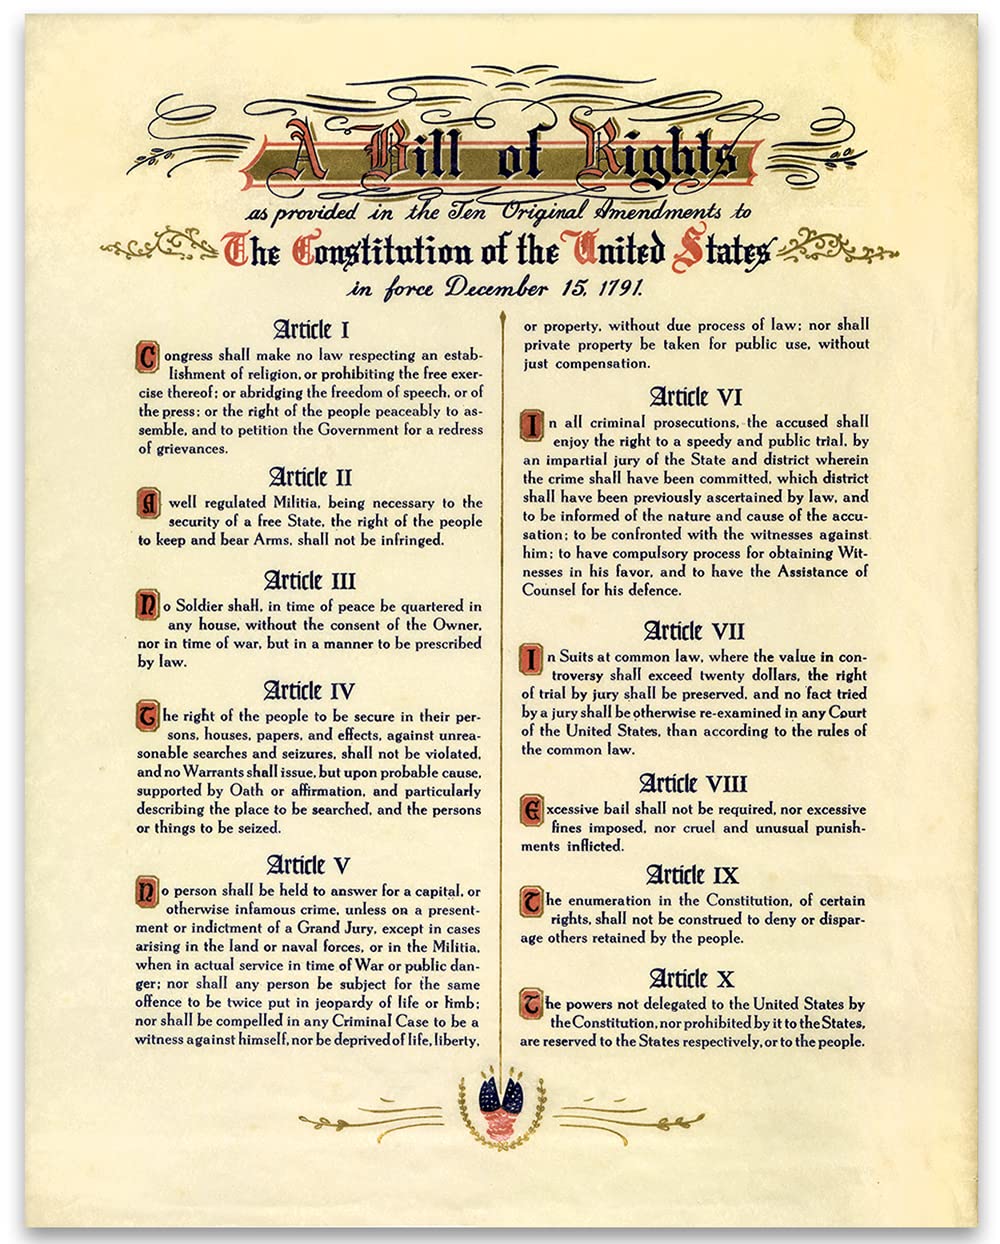 A Bill of Rights
as provided in the Ten Original Amendments to
The Constitution of the United States
in force December 15, 1791.
Article I
Congress shall make no law respecting an estab-
lishment of religion, or prohibiting the free exer-
cise thereof; or abridging the freedom of speech, or of
the press; or the right of the people peaceably to as-
semble, and to petition the Government for a redress
of grievances.
Article II
A well regulated Militia, being necessary to the
security of a free State, the right of the people
to keep and bear Arms, shall not be infringed.
Article III
No Soldier shall, in time of peace be quartered in
any house, without the consent of the Owner,
nor in time of war, but in a manner to be prescribed
by law.
Article IV
The right of the people to be secure in their per-
sons, houses, papers, and effects, against unrea-
sonable searches and seizures, shall not be violated,
and no Warrants shall issue, but upon probable cause,
supported by Oath or affirmation, and particularly
describing the place to be searched, and the persons
or things to be seized.
Article V
No person shall be held to answer for a capital, or
otherwise infamous crime, unless on a present-
ment or indictment of a Grand Jury, except in cases
arising in the land or naval forces, or in the Militia,
when in actual service in time of War or public dan-
ger; nor shall any person be subject for the same
offence to be twice put in jeopardy of life or limb;
nor shall be compelled in any Criminal Case to be a
witness against himself, nor be deprived of life, liberty,
or property, without due process of law; nor shall
private property be taken for public use, without
just compensation.
Article VI
In all criminal prosecutions, the accused shall
enjoy the right to a speedy and public trial, by
an impartial jury of the State and district wherein
the crime shall have been committed, which district
shall have been previously ascertained by law, and
to be informed of the nature and cause of the accu-
sation; to be confronted with the witnesses against
him; to have compulsory process for obtaining Wit-
nesses in his favor, and to have the Assistance of
Counsel for his defence.
Article VII
In Suits at common law, where the value in con-
troversy shall exceed twenty dollars, the right
of trial by jury shall be preserved, and no fact tried
by a jury shall be otherwise re-examined in any Court
of the United States, than according to the rules of
the common law.
Article VIII
Excessive bail shall not be required, nor excessive
fines imposed, nor cruel and unusual punish-
ments inflicted.
Article IX
The enumeration in the Constitution, of certain
rights, shall not be construed to deny or dispar-
age others retained by the people.
Article X
The powers not delegated to the United States by
the Constitution, nor prohibited by it to the States,
are reserved to the States respectively, or to the people.